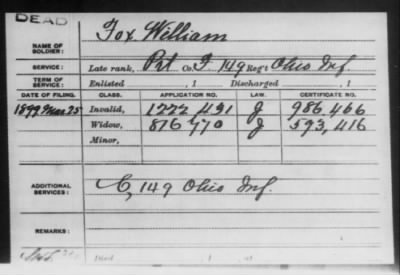 DEAD
Fox William
NAME OF SOLDIER:
SERVICE: Late rank, Pvt Co. F, 149 Reg't Ohio Inf
TERM OF SERVICE: Enlisted , 1 Discharged , 1
DATE OF FILING. CLASS. APPLICATION NO. LAW. CERTIFICATE NO.
1899 Mar 25 Invalid, 1222,491 J 986,466
Widow, 816,770 J 593,416
Minor,
ADDITIONAL SERVICES: C, 149 Ohio Inf.
REMARKS: